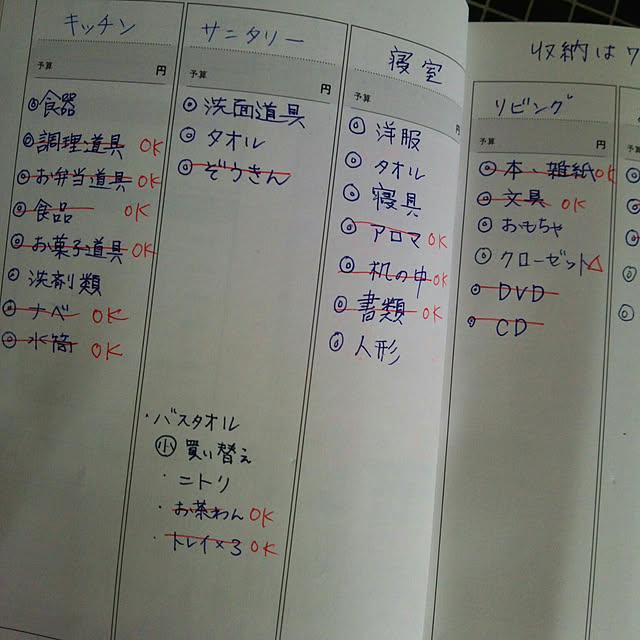 キッチン
予算 円
◎食器
◎調理道具 OK
◎お弁当道具 OK
◎食品 OK
◎お菓子道具 OK
◎洗剤類
◎ナベ OK
◎水筒 OK
サニタリー
予算 円
◎洗面道具
◎タオル
◎ぞうきん
・バスタオル
小 買い替え
・ニトリ
・お茶わん OK
・トレイ×3 OK
寝室
予算 円
◎洋服
◎タオル
◎寝具
◎アロマ OK
◎机の中 OK
◎書類 OK
◎人形
収納は7
リビング
予算 円
◎本・雑紙 OK
◎文具 OK
◎おもちゃ
◎クローゼット△
◎DVD
◎CD